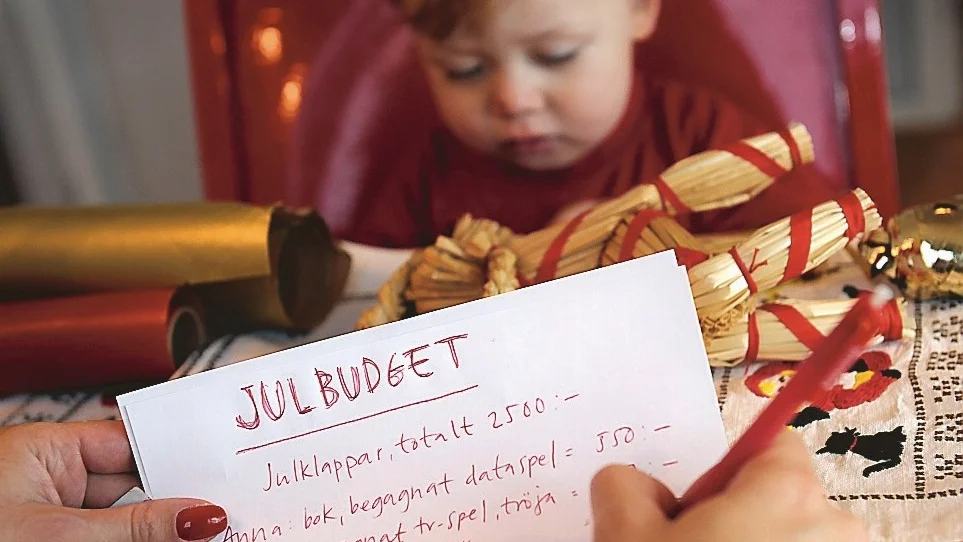 JULBUDGET
Julklappar, totalt 2500:-
Anna: bok, begagnat dataspel = 550:-
tv-spel, tröja = :-